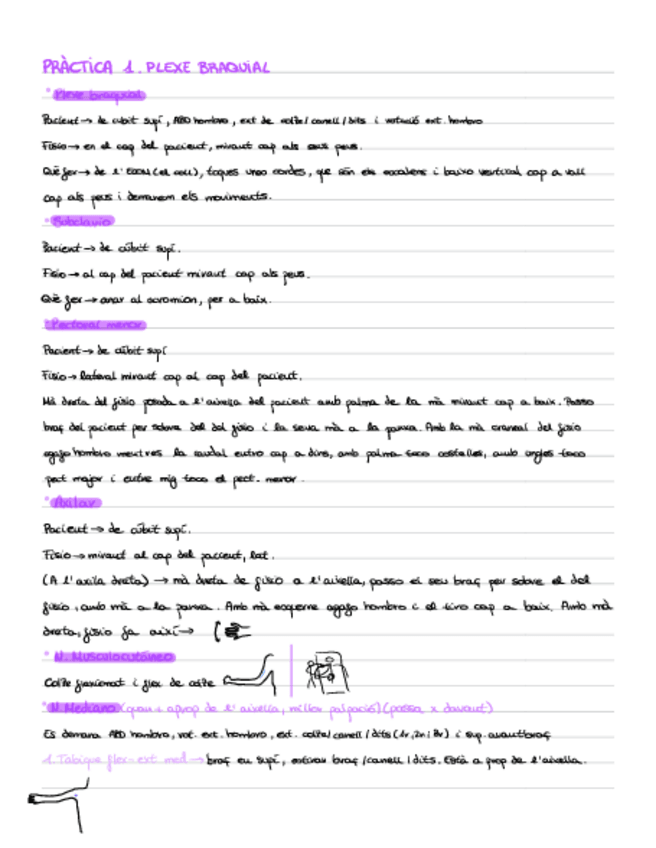 PRÀCTICA 1. PLEXE BRAQUIAL
• Plexe braquial
Pacient → de cúbit supí, ABD hombro, ext de colze/canell/dits i rotació ext. hombro
Fisio → en el cap del pacient, mirant cap als seus peus.
Què fer → de l'ECOM (el coll), toques unes cordes, que són els escalens i baixo vertical cap a vall
cap als peus i demanem els moviments.
• Subclavio
Pacient → de cúbit supí.
Fisio → al cap del pacient mirant cap als peus.
Què fer → anar al acromion, per a baix.
• Pectoral menor
Pacient → de cúbit supí
Fisio → lateral mirant cap al cap del pacient.
Mà dreta del fisio posada a l'aixella del pacient amb palma de la mà mirant cap a baix. Passo
braç del pacient per sobre del del fisio i la seva mà a la panxa. Amb la mà craneal del fisio
agafo hombro mentres la caudal entro cap a dins, amb palma toco costelles, amb ungles toco
pect major i entre mig toco el pect. menor.
• Axilar
Pacient → de cúbit supí.
Fisio → mirant al cap del pacient, lat.
(A l'axila dreta) → mà dreta de fisio a l'aixella, passo el seu braç per sobre el del
fisio, amb mà a la panxa. Amb mà esquerre agafo hombro i el tiro cap a baix. Amb mà
dreta, fisio fa així →
• N. Musculocutáneo
Colze flexionat i flex de colze
• N. Mediano (quan + aprop de l'aixella, millor palpació) (passa x davant)
Es demana ABD hombro, rot. ext. hombro, ext. colze/canell/dits (1r, 2n i 3r) i sup. avantbraç
1. Tabique flex-ext med → braç en supí, estirar braç/canell/dits. Està a prop de l'aixella.